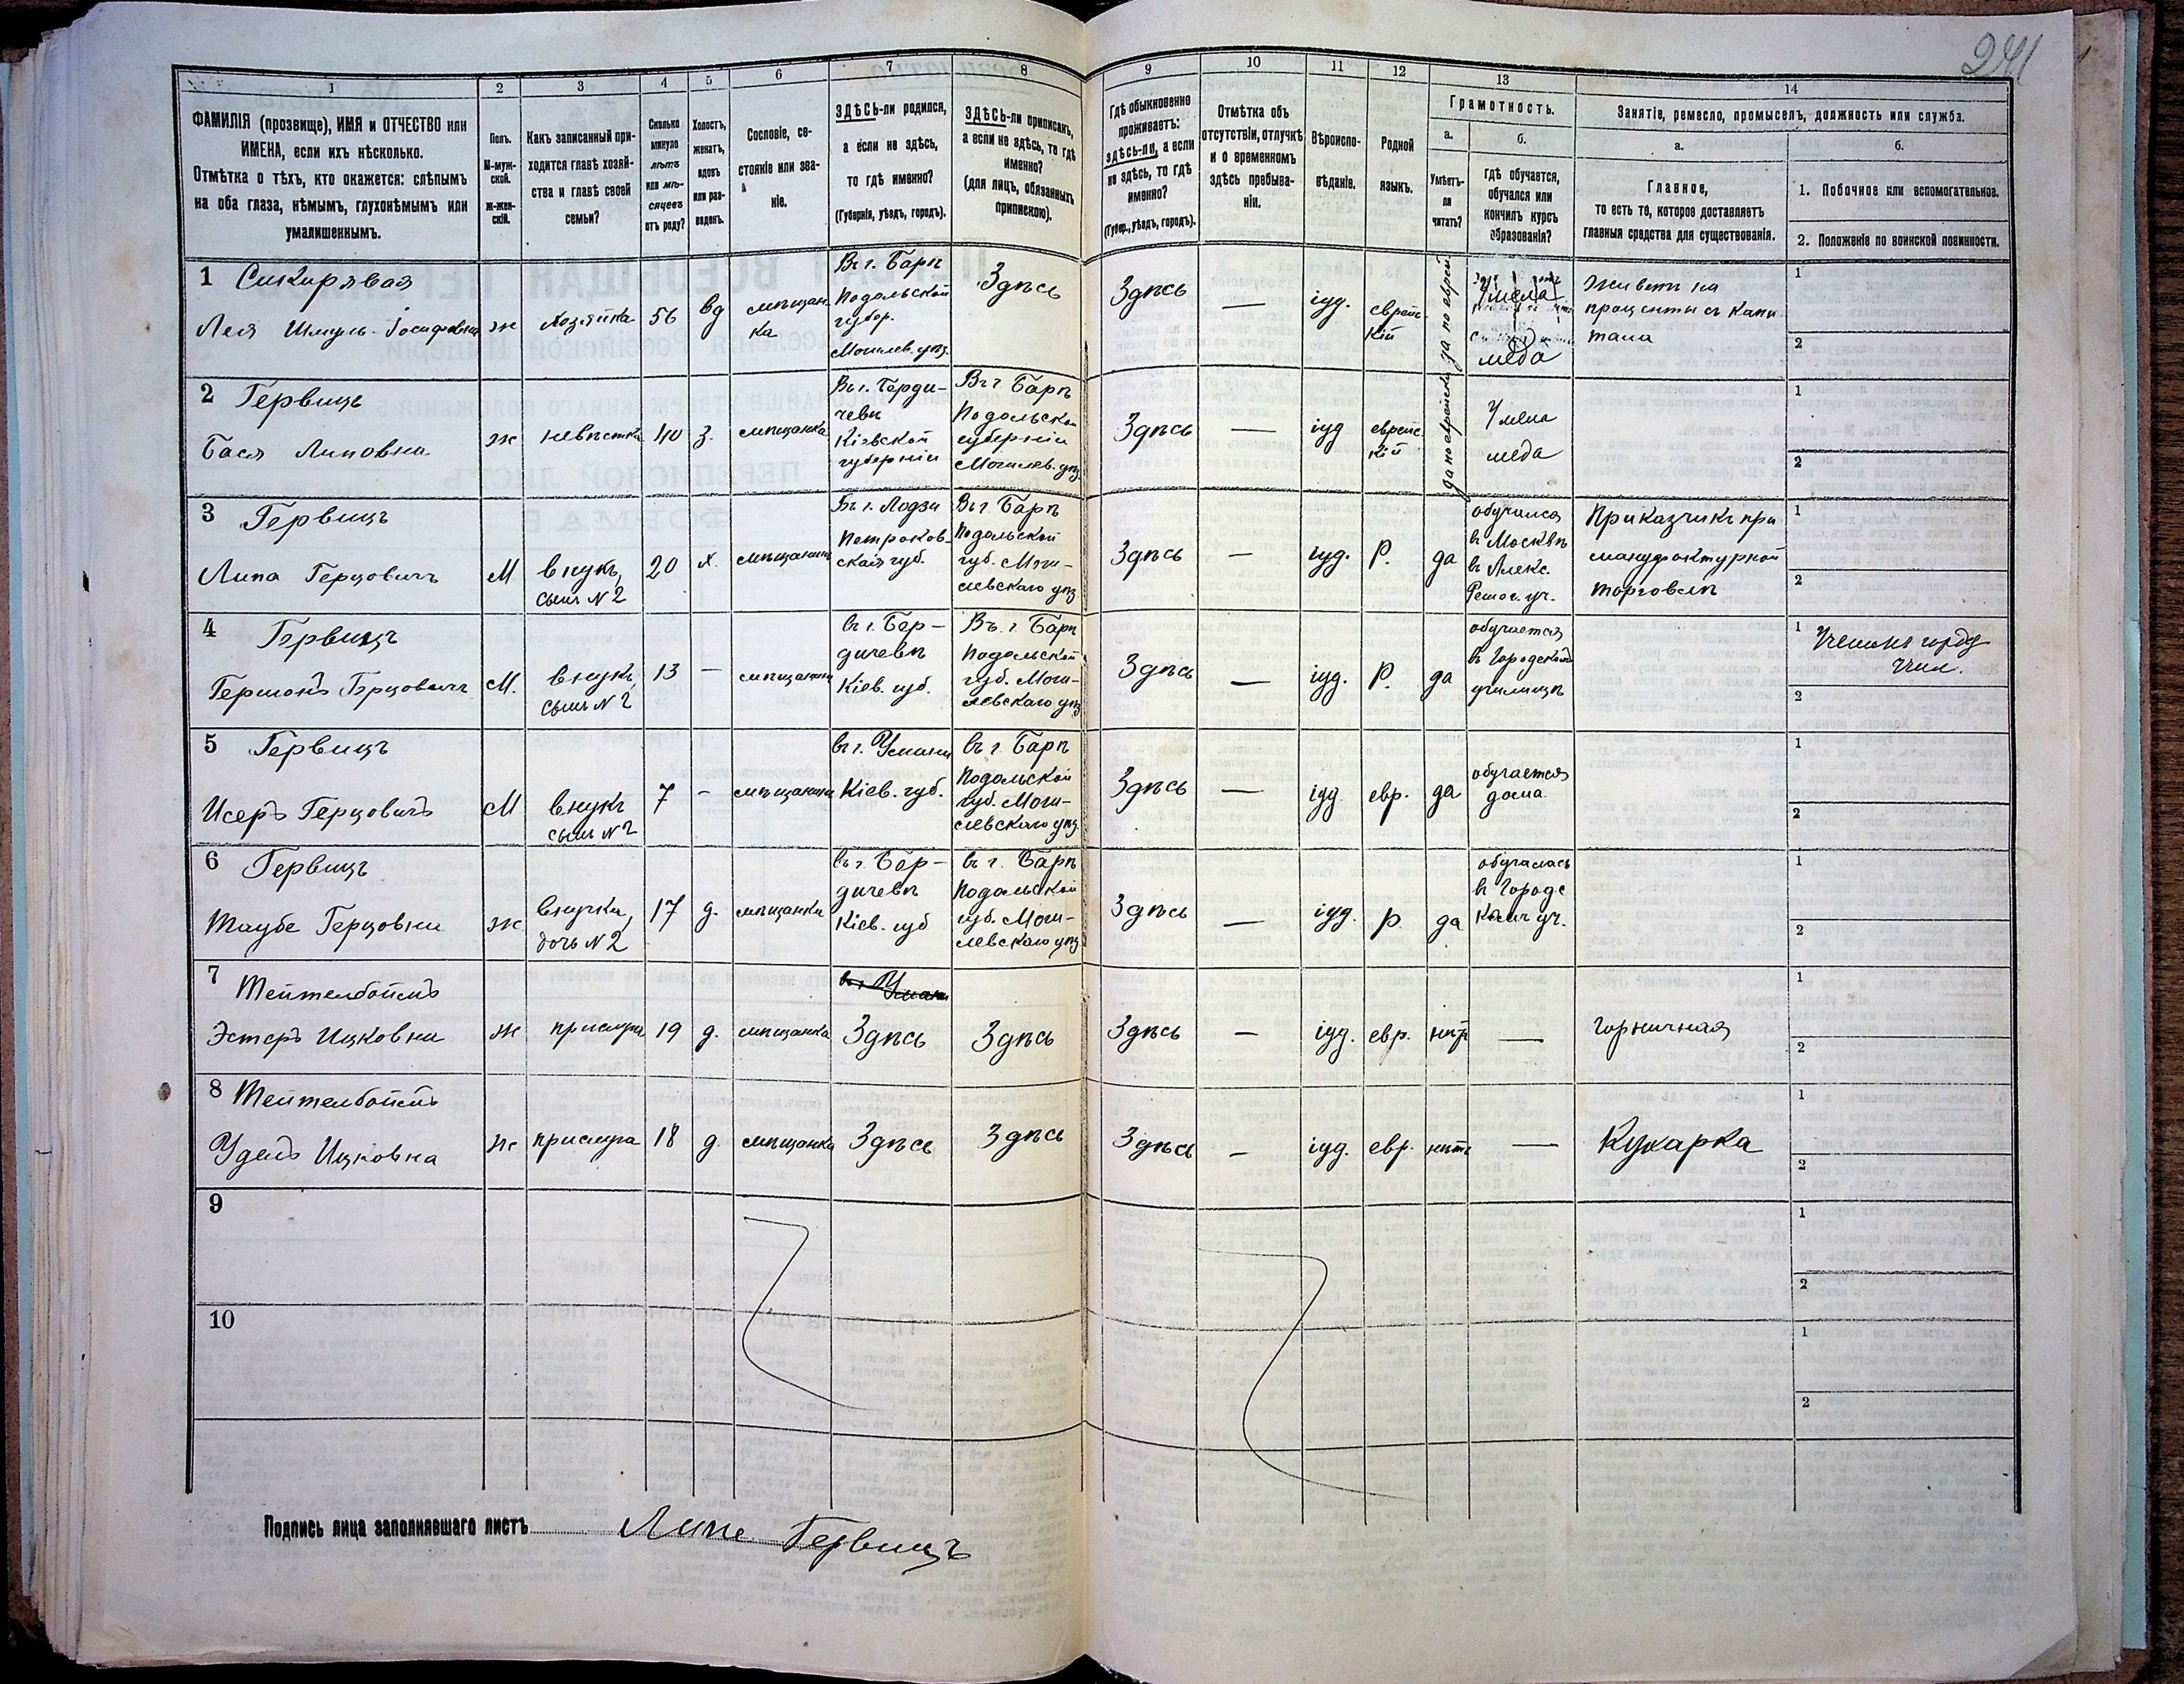 241
1
ФАМИЛІЯ (прозвище), ИМЯ и ОТЧЕСТВО или
ИМЕНА, если ихъ нѣсколько.
Отмѣтка о тѣхъ, кто окажется: слѣпымъ
на оба глаза, нѣмымъ, глухонѣмымъ или
умалишеннымъ.
2
Полъ.
М-муж-
ской.
Ж-жен-
скій.
3
Какъ записанный при-
ходится главѣ хозяй-
ства и главѣ своей
семьи?
4
Сколько
минуло
лѣтъ
или мѣ-
сяцевъ
отъ роду?
5
Холостъ,
женатъ,
вдовъ
или раз-
веденъ.
6
Сословіе, со-
стояніе или зва-
ніе.
7
ЗДѢСЬ-ли родился,
а если не здѣсь,
то гдѣ именно?
(Губернія, уѣздъ, городъ).
8
ЗДѢСЬ-ли приписанъ,
а если не здѣсь, то гдѣ
именно?
(для лицъ, обязанныхъ
припискою).
9
Гдѣ обыкновенно
проживаетъ:
здѣсь-ли, а если
не здѣсь, то гдѣ
именно?
(Губер., уѣздъ, городъ).
10
Отмѣтка объ
отсутствіи, отлучкѣ
и о временномъ
здѣсь пребыва-
ніи.
11
Вѣроиспо-
вѣданіе.
12
Родной
языкъ.
13
Грамотность.
а.
Умѣетъ-
ли
читать?
б.
Гдѣ обучается,
обучался или
кончилъ курсъ
образованія?
14
Занятіе, ремесло, промыселъ, должность или служба.
а.
Главное,
то есть то, которое доставляетъ
главныя средства для существованія.
б.
1. Побочное или вспомогательное.
2. Положеніе по воинской повинности.
1 Сикирявая
Лея Шмуль-Іосифовна
ж
хозяйка
56
вд
мѣщан
ка
Въ г. Барѣ
Подольской
губер.
Могилев. уѣз.
Здѣсь
Здѣсь
—
іуд.
еврей-
кій
да по еврей
Умела
меда
Живетъ на
проценты съ капи
тала
1
2
2 Гервицъ
Бася Липовна
ж
невѣстка
40
з.
мѣщанка
Въ г. Берди-
чевѣ
Кіевской
губерніи
Въ г Барѣ
Подольской
губерніи
Могилев. уѣз.
Здѣсь
—
іуд
еврейс.
кій
да по еврейски
Умела
меда
1
2
3 Гервицъ
Липа Герцовичъ
М
внукъ,
сынъ №2
20
х.
мѣщанинъ
Въ г. Лодзи
Петроков-
ская губ.
Въ г Барѣ
Подольской
губ. Моги-
левскаго уѣз
Здѣсь
—
іуд.
Р.
да
обучался
въ Москвѣ
въ Алекс.
Ремес. уч.
Приказчикъ при
мануфактурной
торговлѣ
1
2
4 Гервицъ
Гершонъ Герцовичъ
М.
внукъ,
сынъ №2
13
—
мѣщанинъ
въ г. Бер-
дичевѣ
Кіев. губ.
Въ. г. Барѣ
Подольской
губ. Моги-
левскаго уѣз
Здѣсь
—
іуд.
Р.
да
обучается
въ Городском
училищѣ
1 Ученикъ город
Учил.
2
5 Гервицъ
Исеръ Герцовичъ
М
внукъ
сынъ №2
7
-
мѣщанинъ
въ г. Умани
Кіев. губ.
въ г. Барѣ
Подольской
губ. Моги-
левскаго уѣз.
Здѣсь
—
іуд.
евр.
да
обучается
дома
1
2
6 Гервицъ
Таубе Герцовна
ж
внучка,
дочь №2
17
д.
мѣщанка
въ г. Бер-
дичевѣ
Кіев. губ
въ г. Барѣ
Подольской
губ. Моги-
левскаго уѣз.
Здѣсь
—
іуд.
р.
да
обучалась
въ Городс
комъ уч.
1
2
7 Тейтелбоймъ
Эстеръ Ицковна
ж
прислуга
19
д.
мѣщанка
въ г Умани
Здѣсь
Здѣсь
Здѣсь
—
іуд.
евр.
нѣтъ
—
Горничная
1
2
8 Тейтелбоймъ
Удель Ицковна
ж
прислуга
18
д
мѣщанка
Здѣсь
Здѣсь
Здѣсь
—
іуд.
евр.
нѣтъ
—
Кухарка
1
2
9
1
2
10
1
2
Подпись лица заполнявшаго листъ Липе Гервицъ